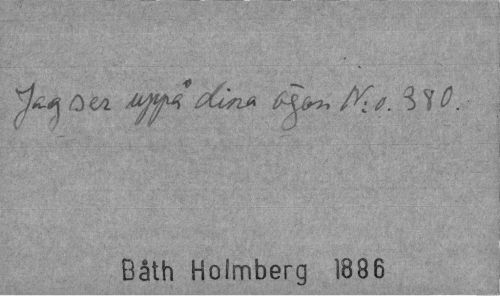 Jag ser uppå dina ögon N:o. 380.
Båth Holmberg 1886